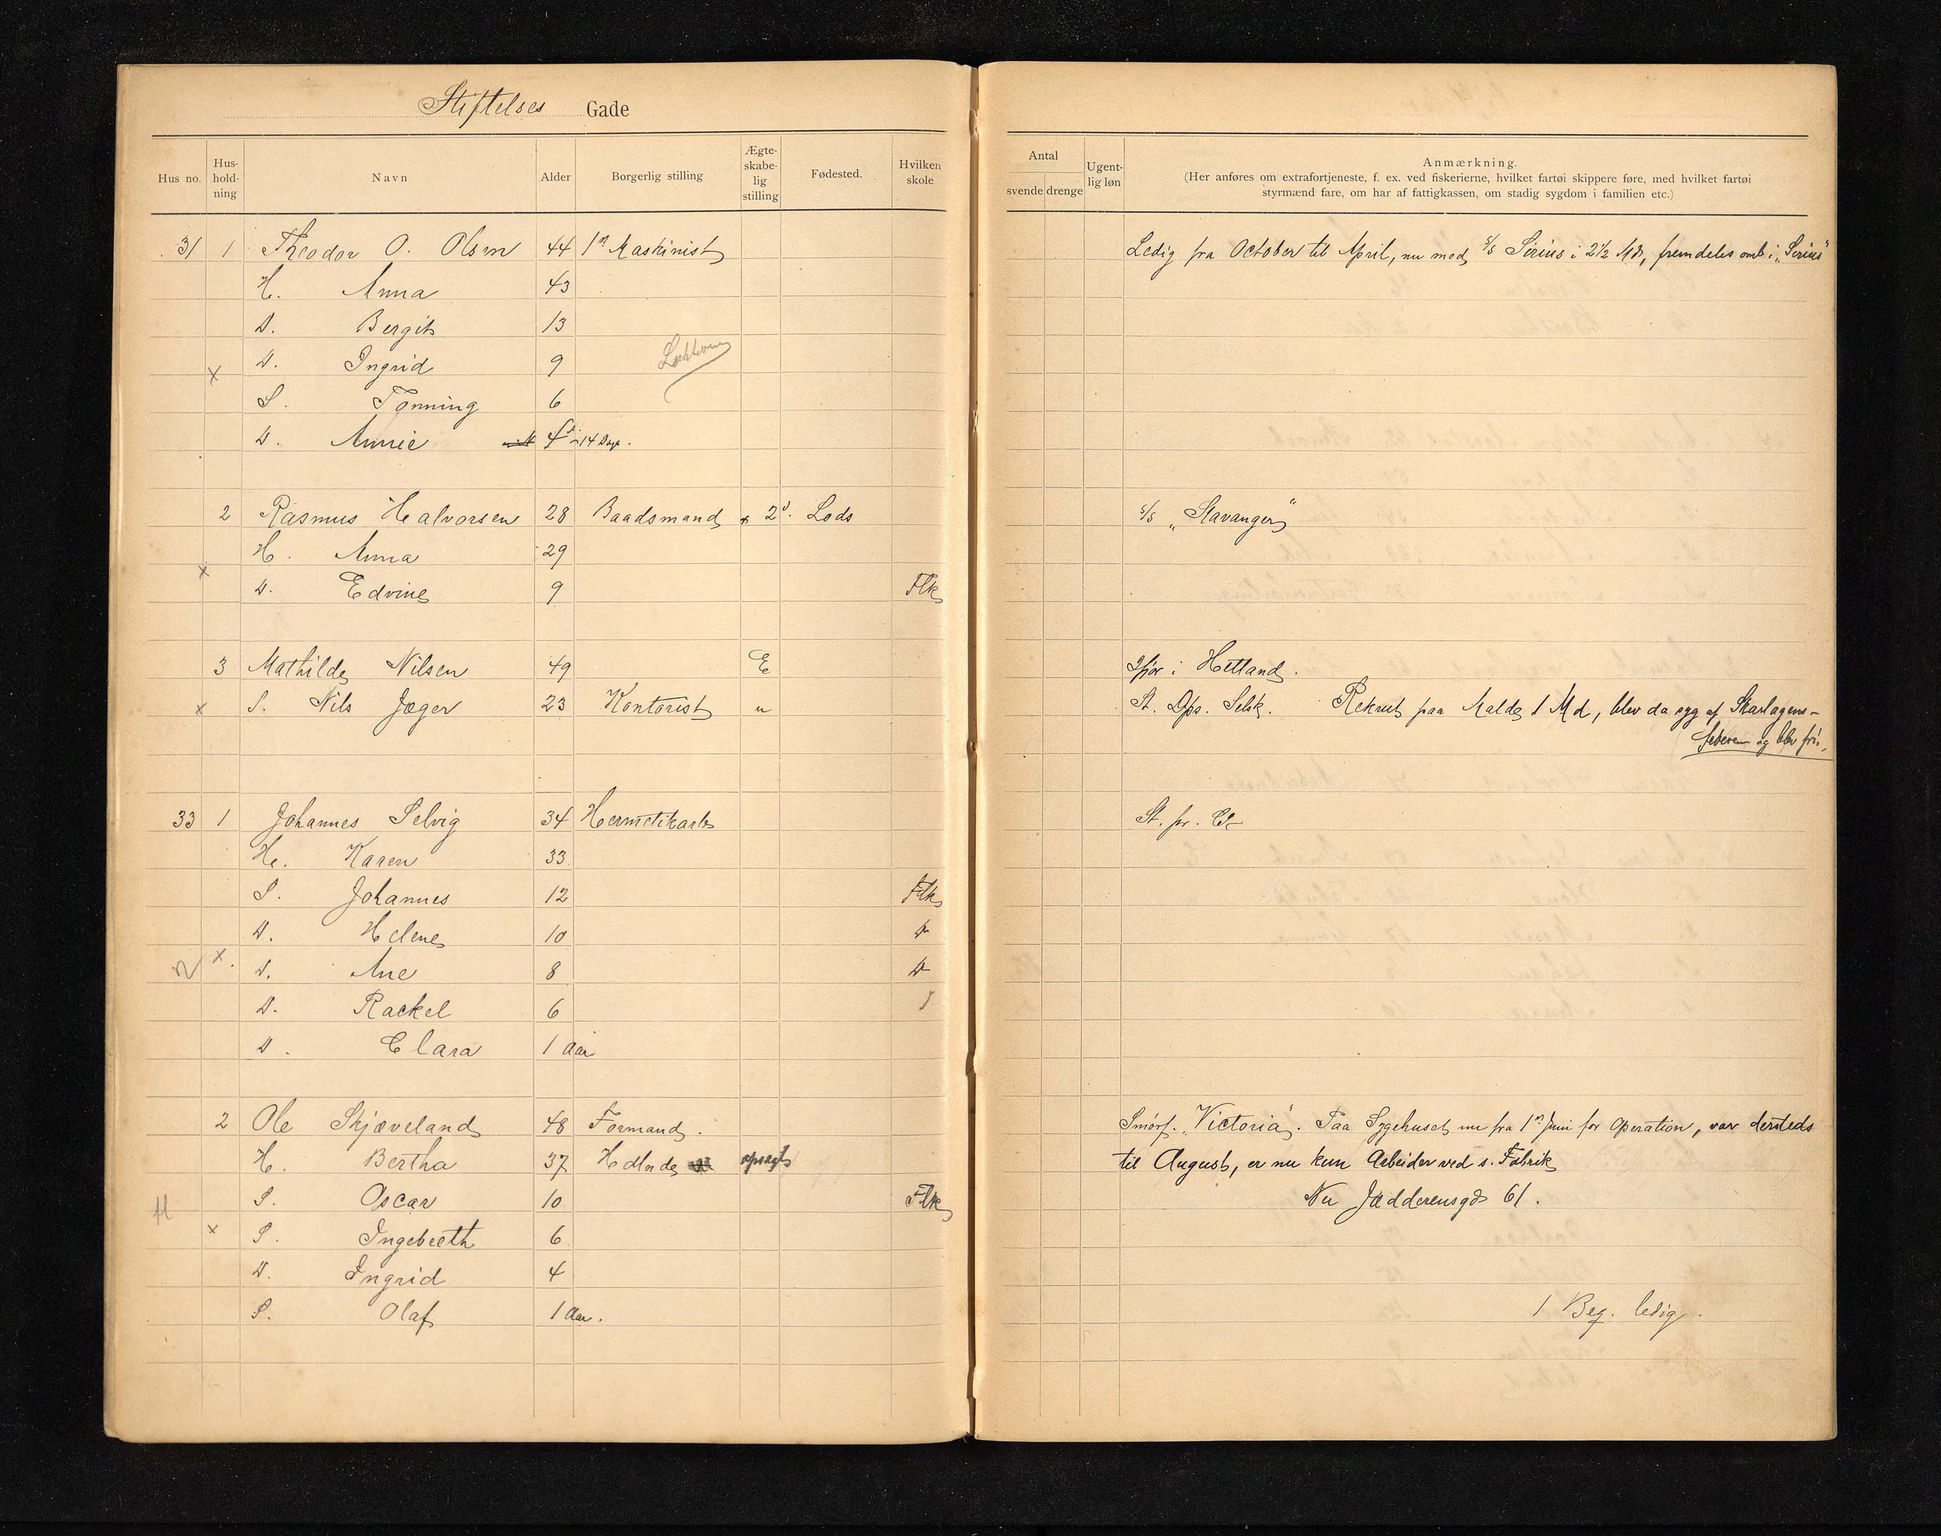 Stiftelses Gade
Hus no. Hus-hold-ning Navn Alder Borgerlig stilling Ægte-skabe-lig stilling Fødested. Hvilken skole
31 1 Theodor O. Olsen 44 1ste Maskinist
H. Anna 43
D. Bergit 13
D. Ingrid 9
x
S. Tonning 6
D. Annie 4 14 Dage.
2 Rasmus Halvorsen 28 Baadsmand 2d. Lods
H. Anna 29
x
D. Edvine 9 Flk
3 Mathilde Nilsen 49 E
x S. Nils Jæger 23 Kontorist u
33 1 Johannes Selvig 34 Hermetikarb
H. Karen 33
S. Johannes 12 Flk
D. Helene 10 D
x D. Ane 8 D
D. Rackel 6
D. Clara 1 Aar
2 Ole Skjæveland 48 Formand.
H. Bertha 37 Hdlnde
S. Oscar 10 Flk
x S. Ingebreth 6
D. Ingrid 4
S. Olaf 1 Aar.
Antal
svende drenge
Ugent-lig løn
Anmærkning.
(Her anføres om extrafortjeneste, f. ex. ved fiskerierne, hvilket fartøi skippere føre, med hvilket fartøi
styrmænd fare, om har af fattigkassen, om stadig sygdom i familien etc.)
Ledig fra October til April, nu med s/s Sirius i 2 1/2 Md, fremdeles omb. i „Sirius"
s/s „Stavanger"
Ifjor i Hetland.
St. Dps. Selsk. Rekrut paa Malde 1 Md, blev da syg af Skarlagens-
feberen og blev fri.
St. pr. Co
Smørf. „Victoria". Paa Sygehuset nu fra 1ste Juni for Operation, var dersteds
til August, er nu kun Arbeider ved s. Fabrik
Nu Jædderensgd 61.
1 Beg. ledig.